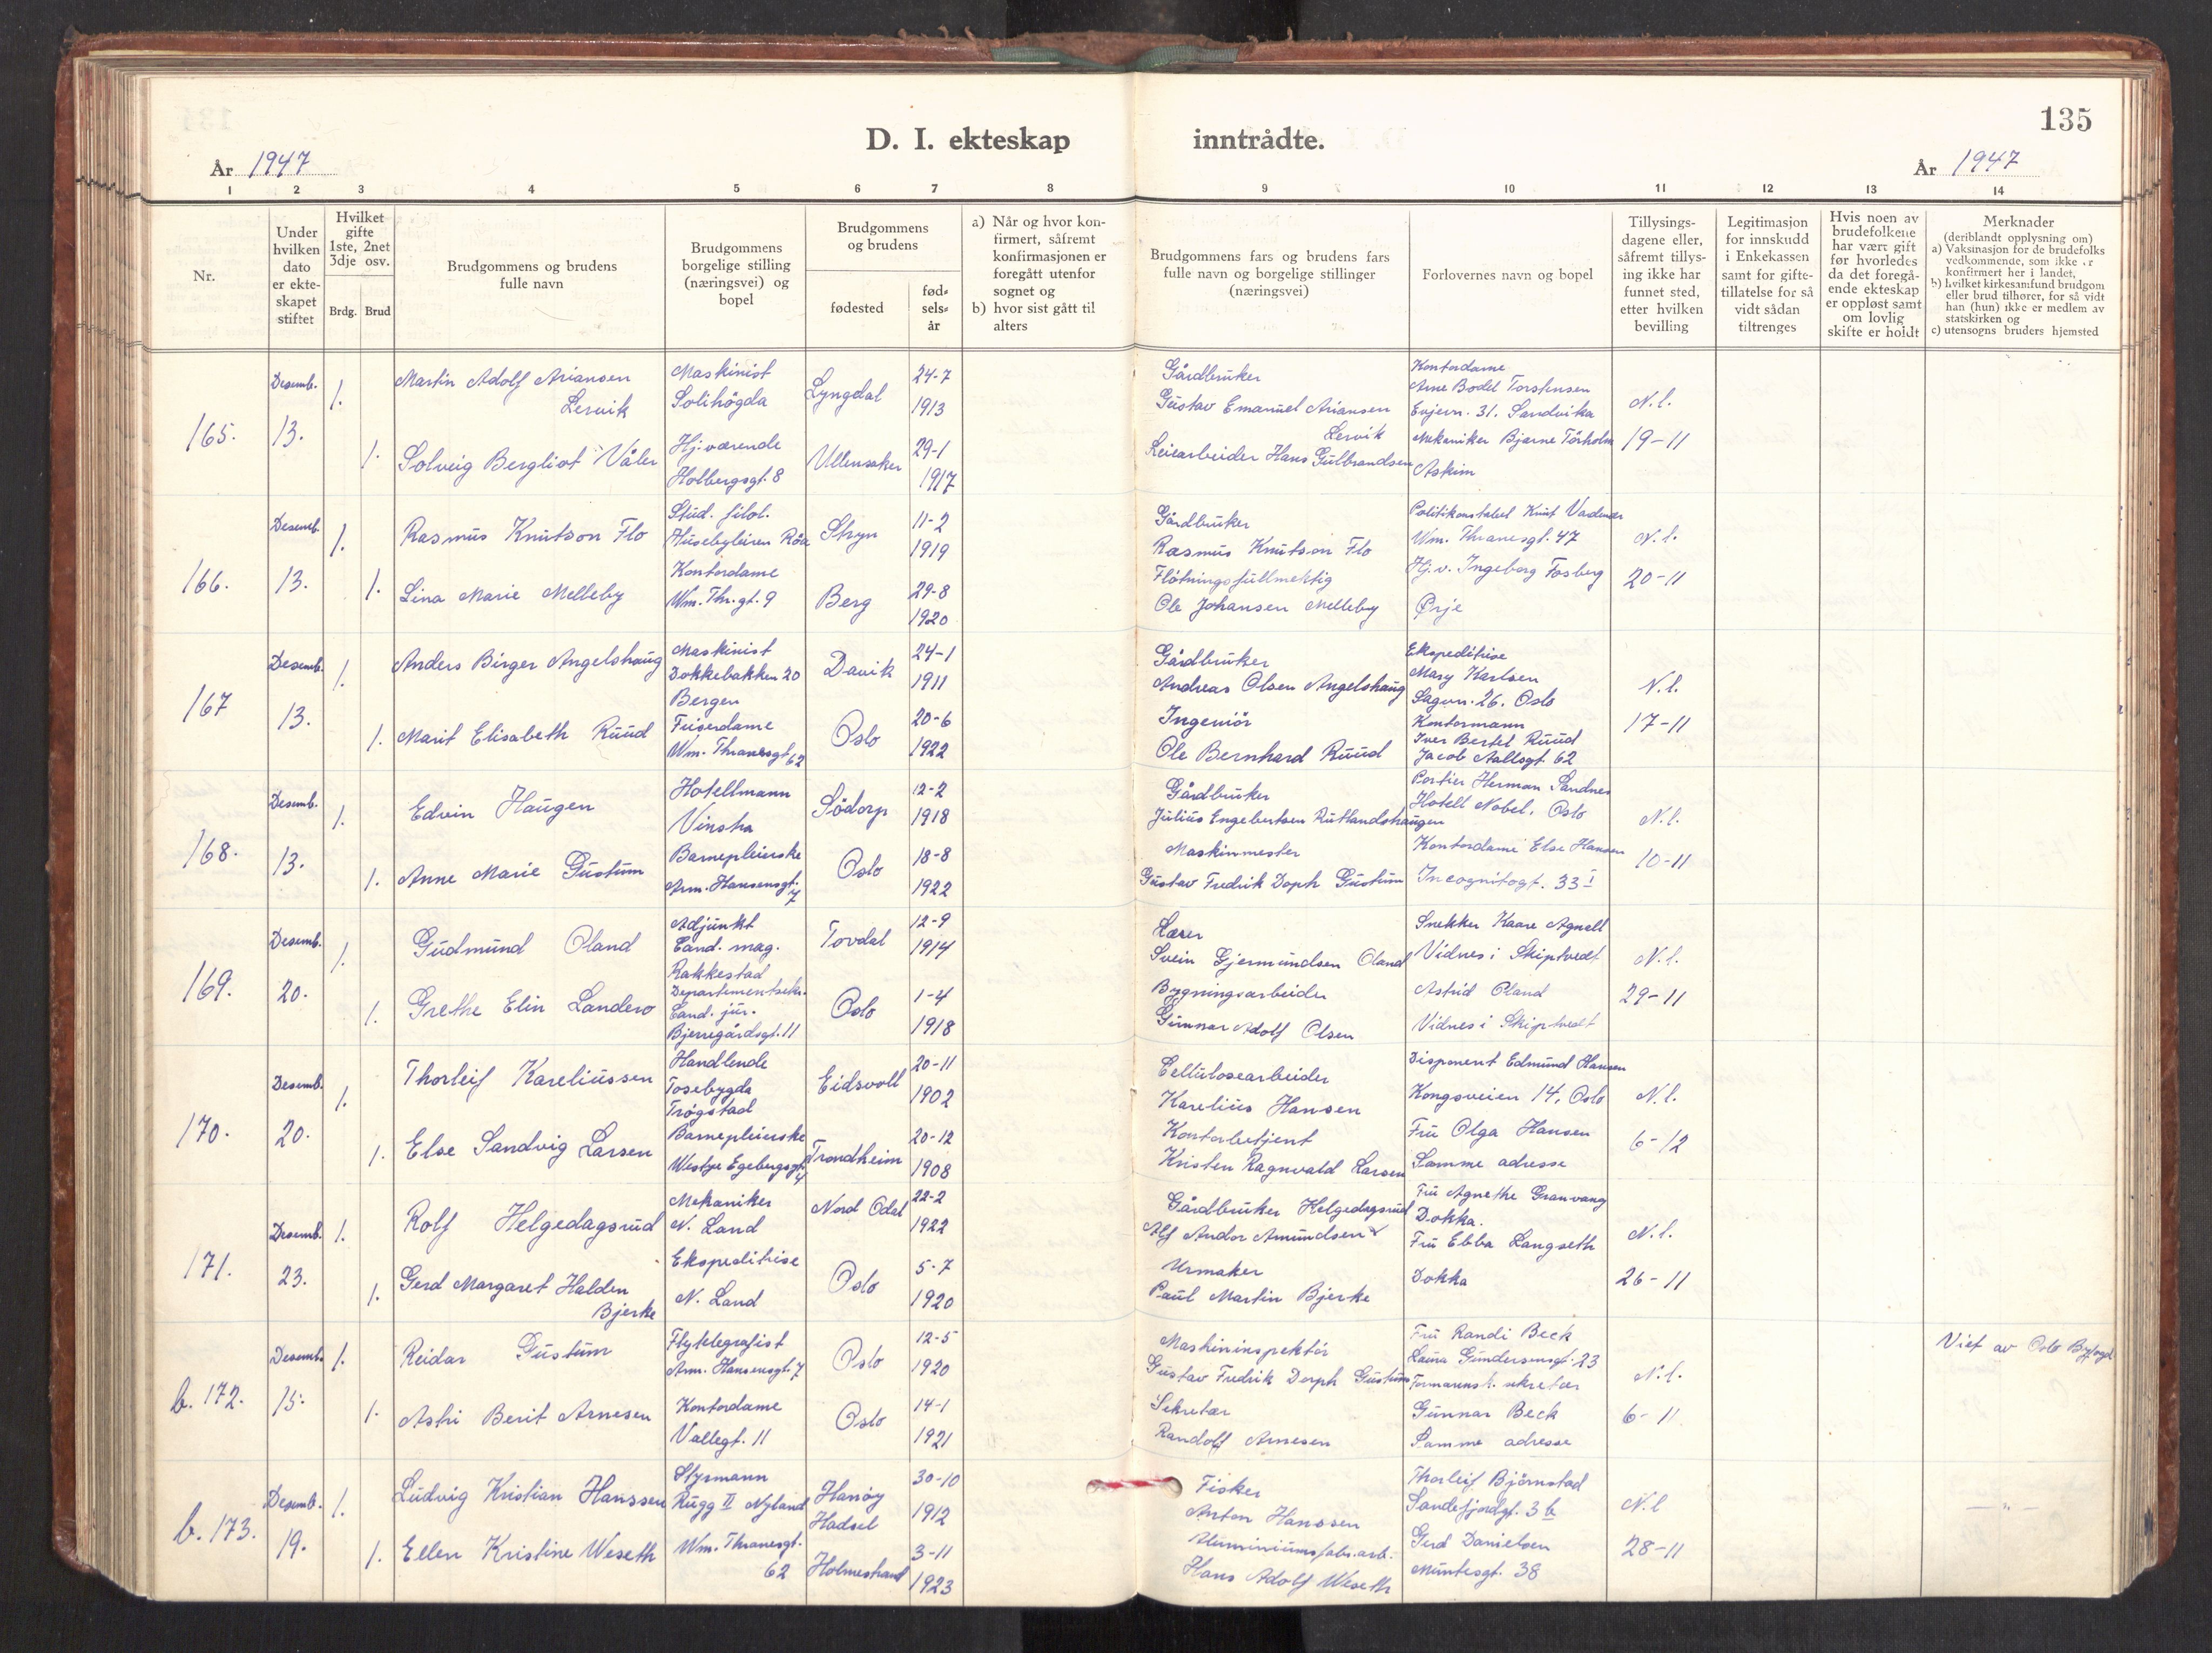 135
D. I. ekteskap inntrådte.
År 1947 År 1947
1 2 3 4 5 6 7 8 9 10 11 12 13 14
Nr.
Under hvilken dato er ekteskapet stiftet
Hvilket gifte 1ste, 2net 3dje osv.
Brdg. Brud
Brudgommens og brudens fulle navn
Brudgommens borgelige stilling (næringsvei) og bopel
Brudgommens og brudens
fødested
fød-
sels-
år
a) Når og hvor kon-
firmert, såfremt
konfirmasjonen er
foregått utenfor
sognet og
b) hvor sist gått til
alters
Brudgommens fars og brudens fars
fulle navn og borgelige stillinger
(næringsvei)
Forlovernes navn og bopel
Tillysings-
dagene eller,
såfremt tillys-
ing ikke har
funnet sted,
etter hvilken
bevilling
Legitimasjon
for innskudd
i Enkekassen
samt for gifte-
tillatelse for så
vidt sådan
tiltrenges
Hvis noen av
brudefolkene
har vært gift
før hvorledes
da det foregå-
ende ekteskap
er oppløst samt
om lovlig
skifte er holdt
Merknader
(deriblandt opplysning om)
a) Vaksinasjon for de brudefolks
vedkommende, som ikke er
konfirmert her i landet,
b) hvilket kirkesamfund brudgom
eller brud tilhører, for så vidt
han (hun) ikke er medlem av
statskirken og
c) utensogns bruders hjemsted
165.
Desemb.
13.
1.
Martin Adolf Ariansen
Lervik
Maskinist
Solihøgda
Lyngdal
24-7
1913
Gårdbruker
Gustav Emanuel Ariansen
Lervik
Kontordame
Arne Bodel Torstensen
Evjevn. 31. Sandvika
N.l.
19-11
1.
Solveig Bergliot Våler
Hj.værende
Holbergsgt. 8
Ullensaker
29-1
1917
Leiearbeider Hans Gulbrandsen
Mekaniker Bjarne Tørholm
Askim
166.
Desemb.
13.
1.
Rasmus Knutson Flo
Stud. filol.
Husebyleiren Røa
Stryn
11-2
1919
Gårdbruker
Rasmus Knutson Flo
Politikonstabel Knut
Wm. Thranesgt. 47
N.l.
20-11
1.
Lina Marie Melleby
Kontordame
Wm. Thr.gt. 9
Berg
29-8
1920
Fløtningsfullmektig
Ole Johansen Melleby
Hj.v. Ingeborg Fosberg
Ørje
167
Desemb.
13.
1.
Anders Birger Angelshaug
Maskinist
Dokkebakken 20
Bergen
Davik
24-1
1911
Gårdbruker
Andreas Olsen Angelshaug
Ekspeditrise
Mary Karlsen
Sagvn. 26. Oslo
N.l.
17-11
1.
Marit Elisabeth Ruud
Friserdame
Wm. Thranesgt 62
Oslo
20-6
1922
Ingeniør
Ole Bernhard Ruud
Kontormann
Iver Bertel Ruud
Jacob Aallsgt. 62
168.
Desemb.
13.
1.
Edvin Haugen
Hotellmann
Vinstra
Södorp
12-2
1918
Gårdbruker
Julius Engebertsen Rutlandshaugen
Portier Herman Sandnes
Hotell Nobel, Oslo
N.l.
10-11
1.
Anne Marie Gustum
Barnepleierske
Arm. Hansensgt. 7
Oslo
18-8
1922
Maskinmester
Gustav Fredrik Dorph Gustum
Kontordame Else Hansen
Incognitogt. 33 I
169.
Desemb.
20.
1.
Gudmund Oland
Adjunkt
Cand. mag.
Rakkestad
Tovdal
12-9
1914
Lærer
Svein Gjermundsen Oland
Snekker Kaare Agnell
Vidnes i Skiptvedt
N.l.
29-11
1.
Grethe Elin Landero
Departementsekr.
Cand. jur.
Bjerregårdsgt. 11
Oslo
1-4
1918
Bygningsarbeider
Gunnar Adolf Olsen
Astrid Oland
Vidnes i Skiptvedt
170.
Desemb.
20.
1.
Thorleif Kareliussen
Handlende
Tosebygda
Trøgstad
Eidsvoll
20-11
1902
Cellulosearbeider
Karelius Hansen
Disponent Edmund Hansen
Kongsveien 14, Oslo
N.l.
6-12
1.
Else Sandvig Larsen
Barnepleierske
Westye Egebergsgt. 4
Trondheim
20-12
1908
Kontorbetjent
Kristen Ragnvald Larsen
Fru Olga Hansen
Samme adresse
171.
Desemb.
23.
1.
Rolf Helgedagsrud
Mekaniker
N. Land
Nord Odal
22-2
1922
Gårdbruker Helgedagsrud
Alf Andor Amundsen
Fru Agnethe Granvang
Dokka.
N.l.
26-11
1.
Gerd Margaret Halden
Bjerke
Ekspeditrise
N. Land
Oslo
5-7
1920
Urmaker
Paul Martin Bjerke
Fru Ebba Langseth
Dokka
b. 172.
Desemb.
15.
1.
Reidar Gustum
Flytelegrafist
Arm. Hansensgt. 7
Oslo
12-5
1920
Maskininspektør
Gustav Fredrik Dorph Gustum
Fru Randi Beck
Laura Gundersensgt. 23
N.l.
6-11
Viet av Oslo Byfogd
1.
Astri Berit Arnesen
Kontordame
Vallegt. 11
Oslo
14-1
1921
Sekretær
Randolf Arnesen
sekretær
Gunnar Beck
Samme adresse
b. 173.
Desemb.
19.
1.
Ludvig Kristian Hanssen
Styrmann
Rugg II Nyland
Hanøy
Hadsel
30-10
1912
Fisker
Anton Hanssen
Thorleif Bjørnstad
Sandefjordgt. 3 b
N.l
28-11
— " —
1.
Ellen Kristine Weseth
Wm. Thranesgt.
62
Holmestrand
3-11
1923
Aluminiumsfabr.arb.
Hans Adolf Weseth
Gerd Danielsen
Muntesgt. 38